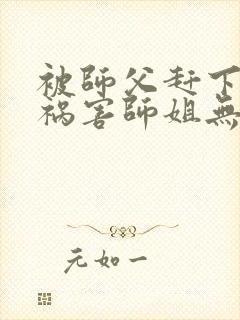 被師父赶下
祸害師姐無
元如一